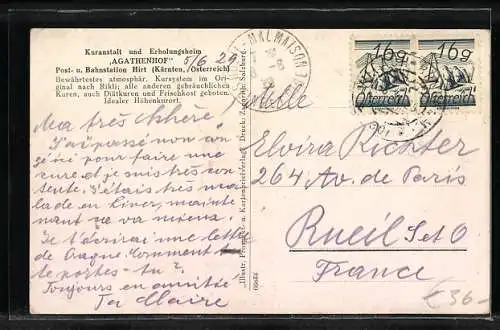 Kuranstalt und Erholungsheim
„AGATHENHOF"
5/6 29
Post- u. Bahnstation Hirt (Kärnten, Österreich)
Bewährtestes atmosphär. Kursystem im Ori-
ginal nach Rikli; alle anderen gebräuchlichen
Kuren, auch Diätkuren und Frischkost geboten.
Idealer Höhenkurort.
Ma très chère!
J'ai passé mon con
gé ici pour faire une
cure et je suis très con
tente. J'étais très ma
lade en hiver, mainte
nant ça va mieux.
Je t'écrirai une lettre
de Comment
te portes-tu?
Toujours en amitié
Ta Claire
MALMAISON
16 g 16 g
Österreich Österreich
Elvira Richter
264 Av. de Paris
Rueil S et O
France
€36-